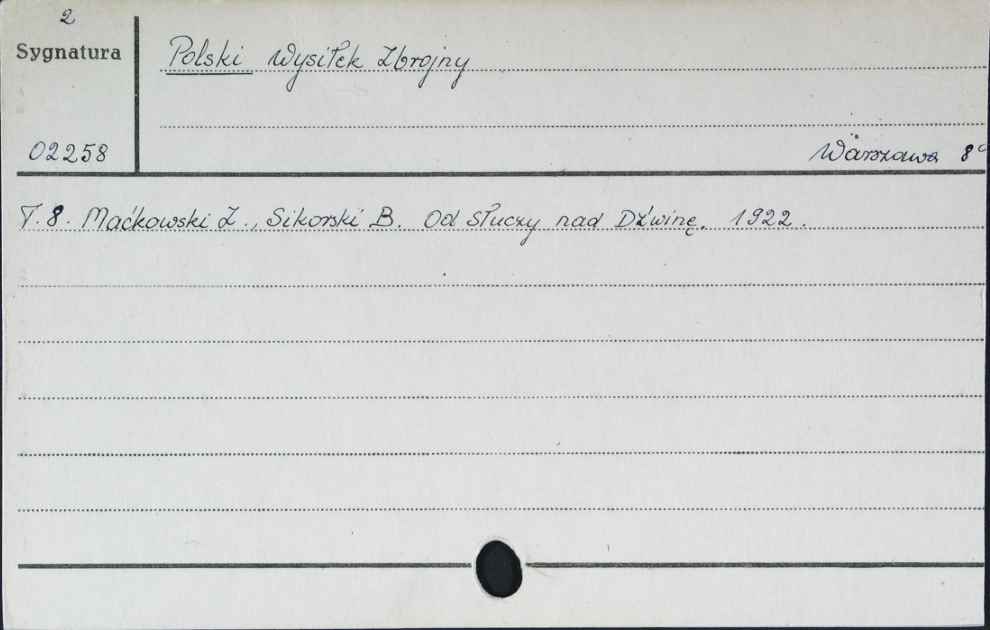 2
Sygnatura
Polski Wysiłek Zbrojny
02258
Warszawa 8°
T. 8. Maćkowski Z., Sikorski B. Od Słuczy nad Dźwinę. 1922.